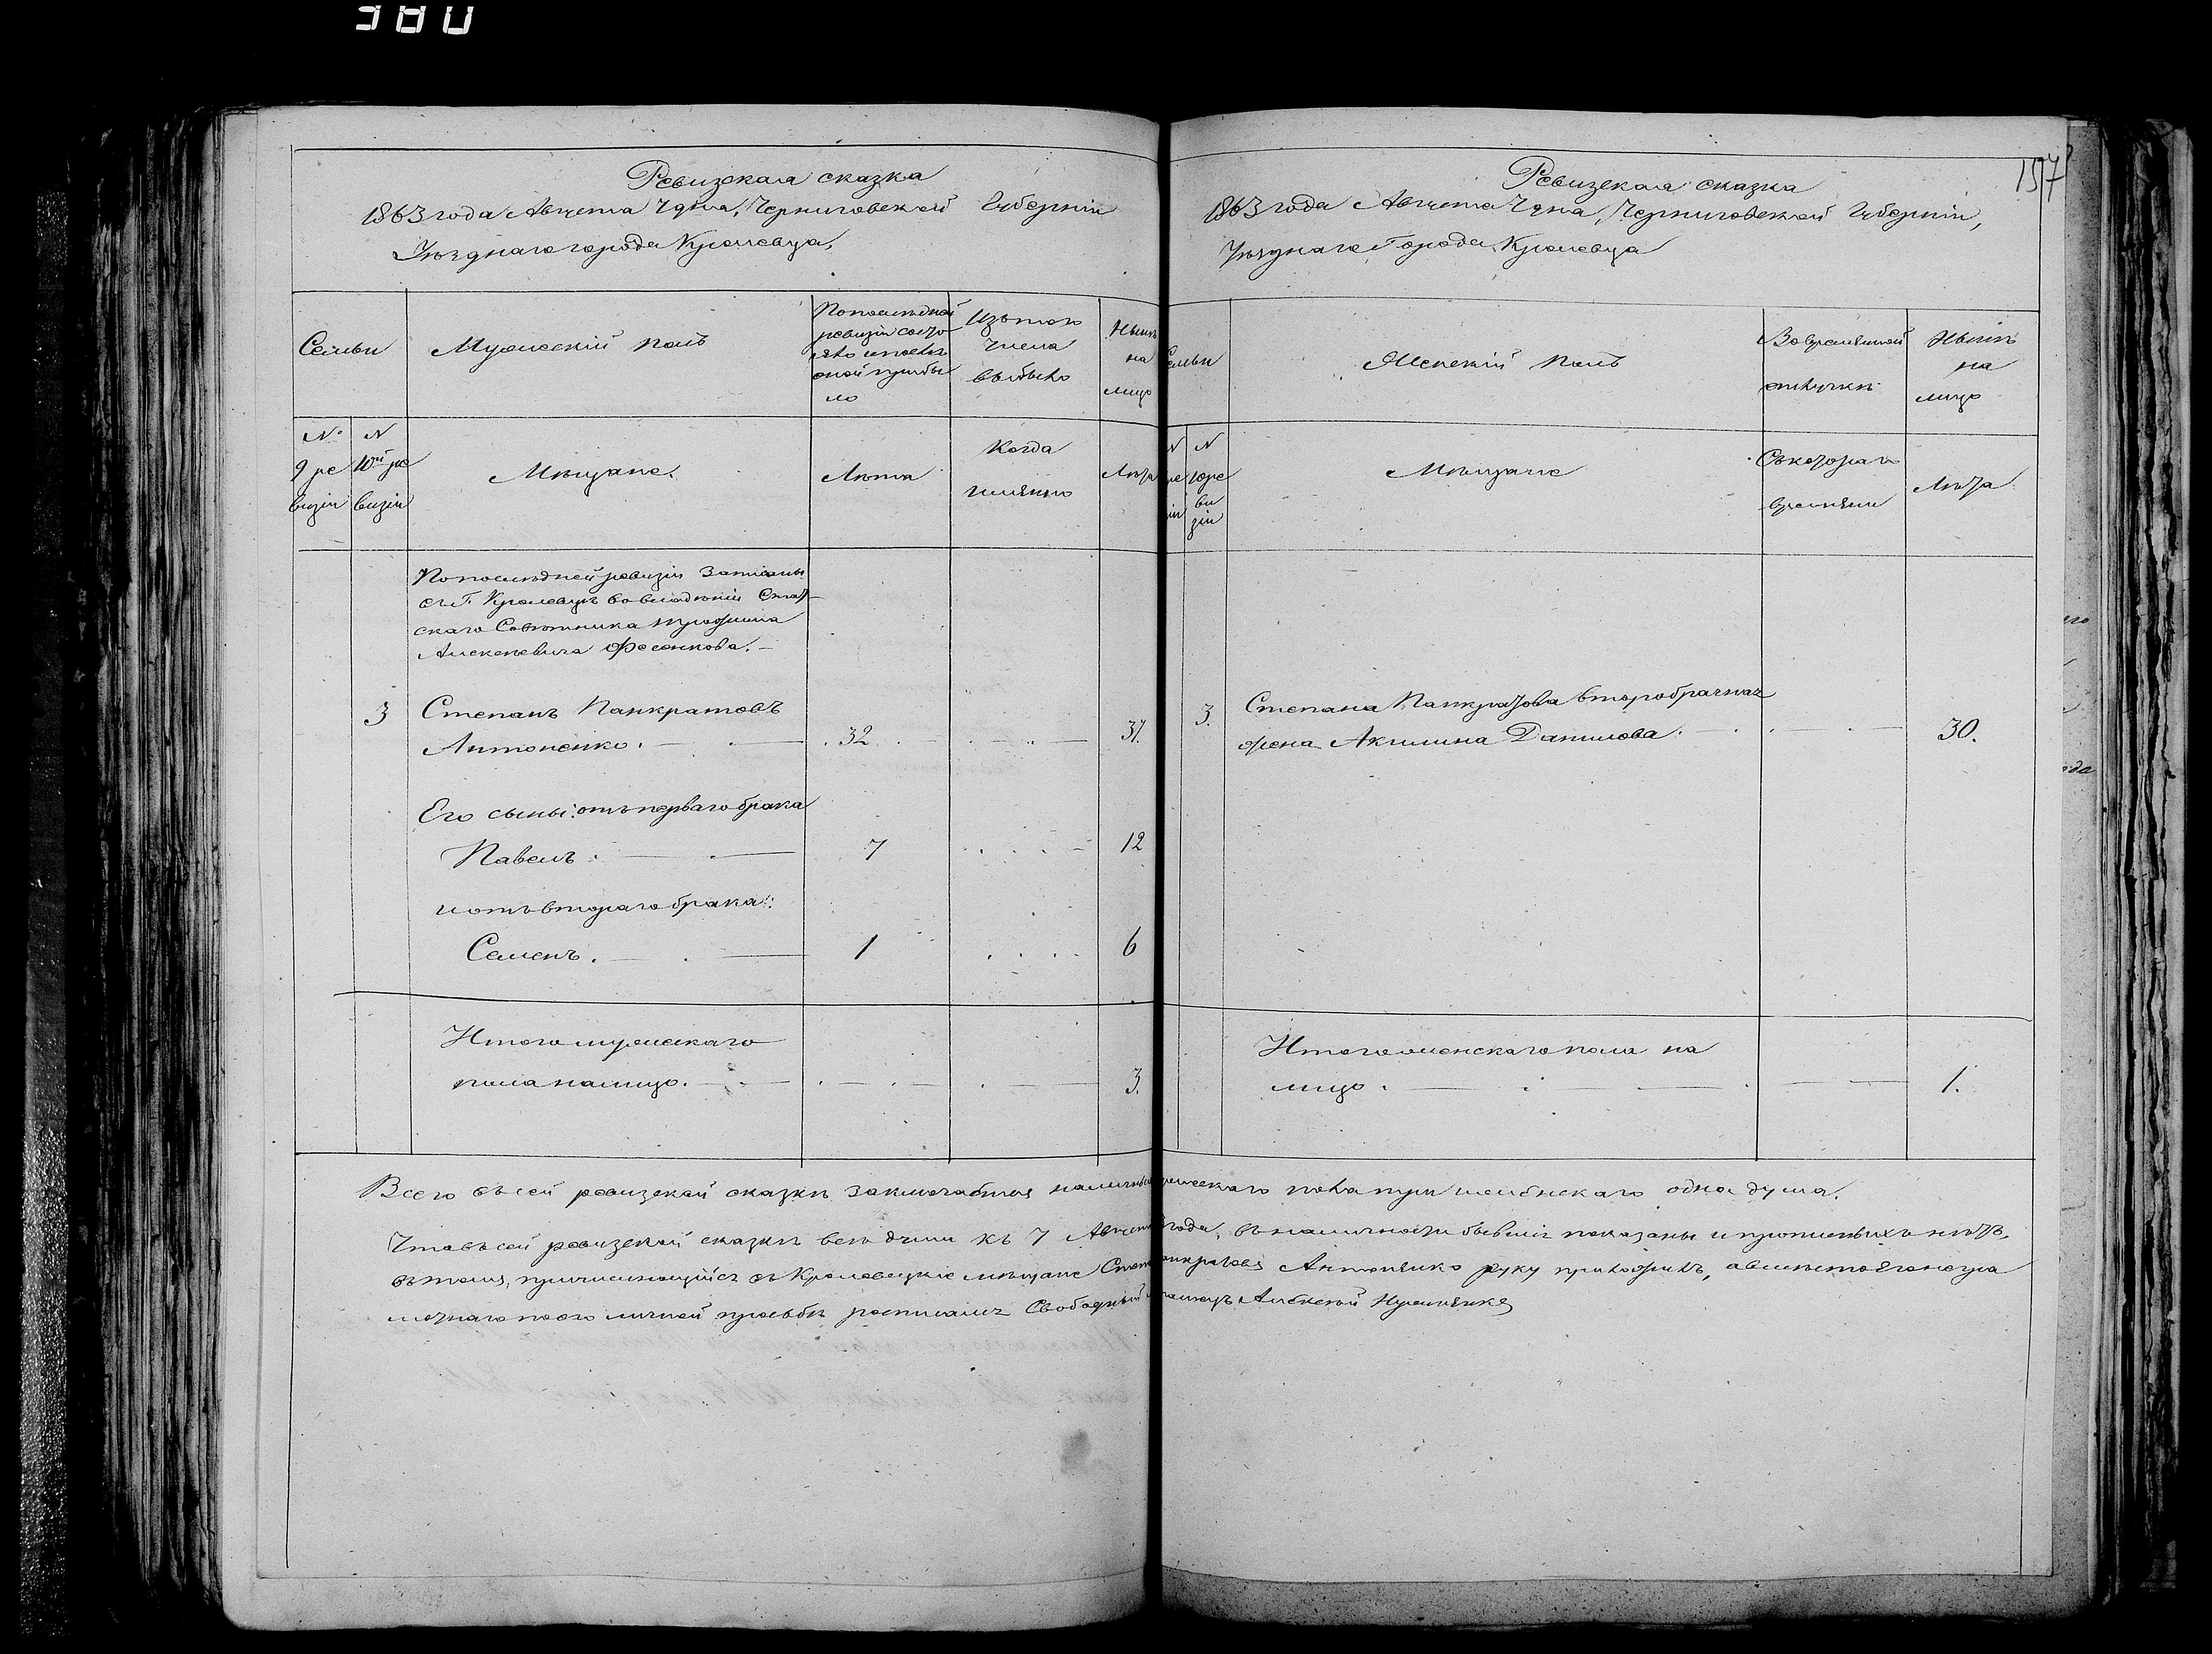 380
Ревизская сказка
1863 года Августа 7 дня, Черниговской Губерніи
Уѣзднаго города Кролевца,
Семьи
Мужескій полъ
По последней
ревизіи состо
яло и после
оной прибы
ло
Изъ того
числа
выбыло
Нынѣ
на
лицо
№
9 ре
визіи
№
10й ре
визіи
Мѣщане.
Лѣта
Когда
именно
Лѣта
По последней ревизіи записаны
въ Г. Кролевцѣ во владѣніи Стат-
скаго Совѣтника
Алексеевича Фесенкова.
3 Степанъ Панкратовъ
Антоненко. 32 37.
Его сыны: отъ перваго брака
Павелъ. 7 12
и отъ втораго брака:
Семенъ. 1 6
Итого мужескаго
пола на лицо. 3.
157
Ревизская сказка
1863 года Августа 7 дня, Черниговской Губерніи,
Уѣзднаго Города Кролевца
Семьи
Женскій полъ
Во временной
отлучкѣ
Нынѣ
на
лицо
№
ре
зіи
№
10 ре
ви
зіи
Мѣщане
Съ котораго
времени
Лѣта
3. Степана Панкратова второбрачная
жена Акилина Данилова. 30.
Итого женскаго пола на
лицо. 1.
Всего въ сей ревизской сказкѣ заключается мужескаго пола три женскаго одна душа.
Что въ сей ревизской сказкѣ все души къ 7 Августа года, въ наличности бывшіе показаны и прописныхъ нѣтъ,
въ томъ, причисляющійся въ Кролевецкіе мѣщане Степанъ Панкратовъ Антоненко руку приложилъ, а вместо его негра
мотнаго по его личной просьбѣ росписался Свободный Алексей